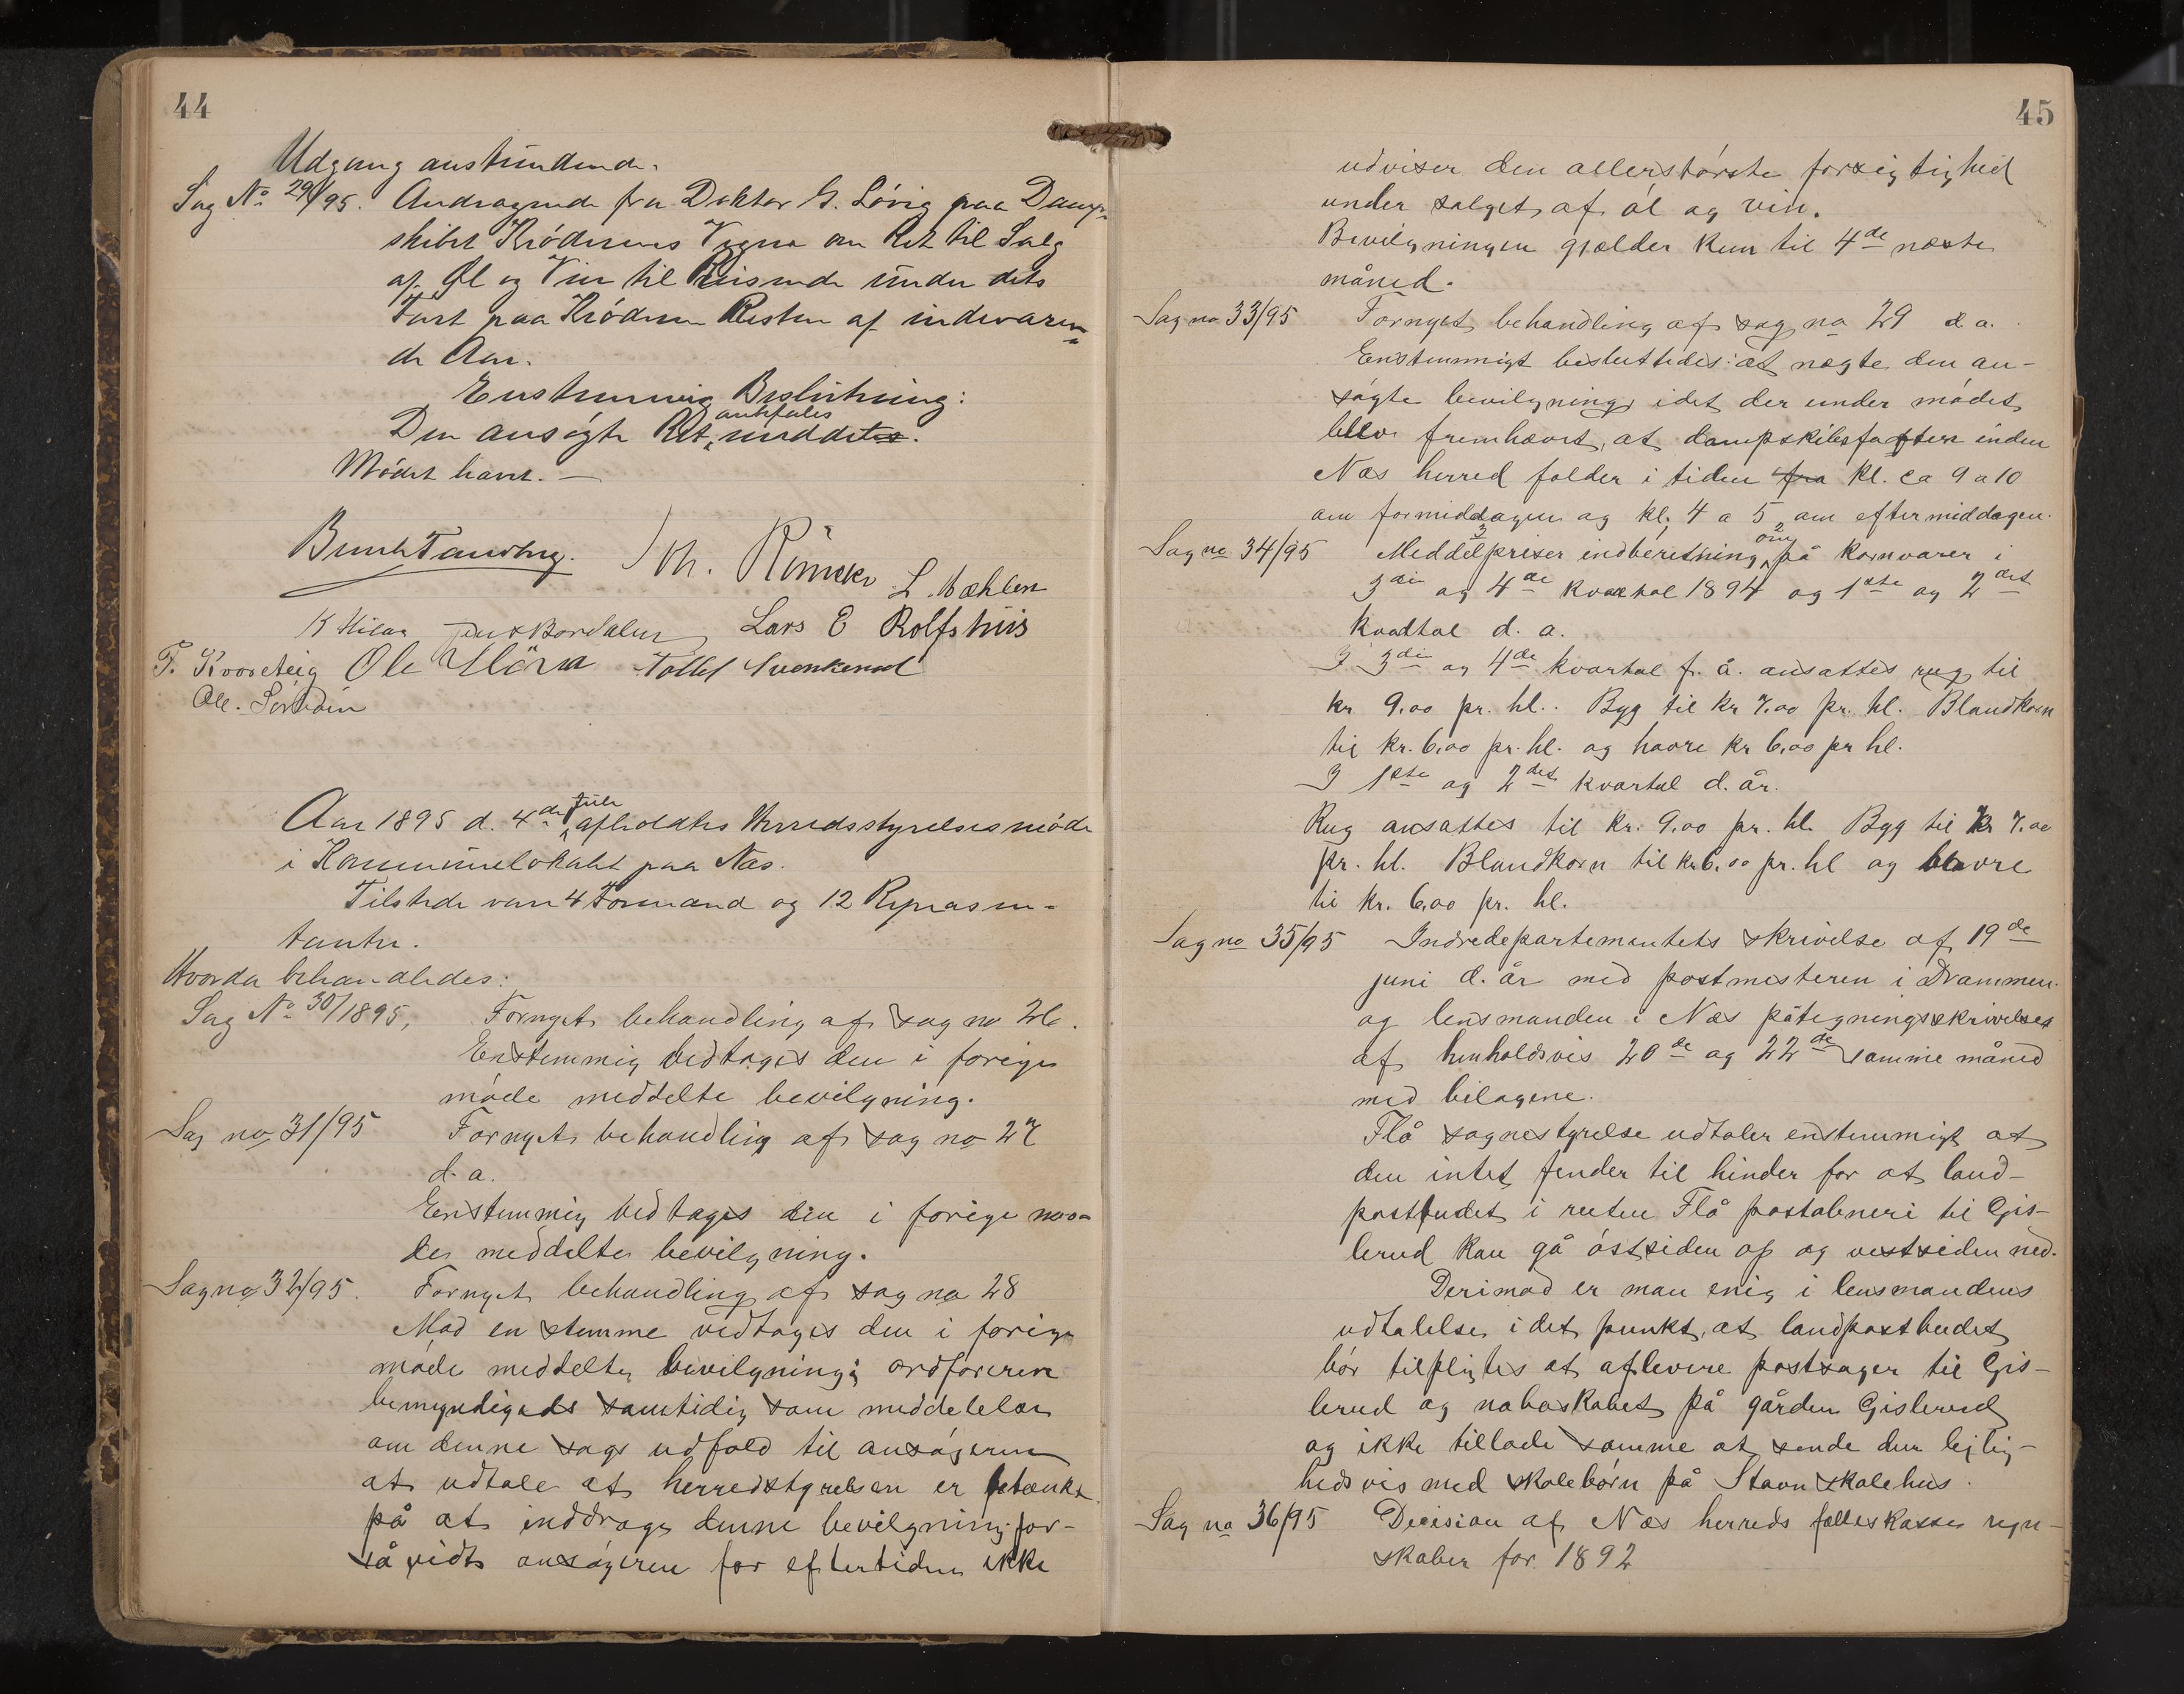 44
Udgang anstundende.
Sag No 29/95. Andragende fra Doktor G. Lövig paa Damp-
skibet Krøderens Vegne om Ret til Salg
af Øl og Vin til Reisende under dets
Fart paa Krøderen Resten af indeværen-
de Aar.
Enstemmig Beslutning:
Den ansøgte Ret anbefales meddelt.
Mødet hævet. —
L. Mæhlen
Lars E Rolfshus
T. Kvoreteig Ole
Aar 1895 d. 4de Juli afholdtes Herredsstyrelsesmøde
i Kommunelokalet paa Næs.
Tilstede vare 4 Formænd og 12 Repræsen-
tanter.
Hvorda behandledes:
Sag No 30/1895, Fornyet behandling af sag no 26.
Enstemmig vedtages den i forige
møde meddelte bevilgning.
Sag no 31/95 Fornyet behandling af sag no 27
d. a.
Enstemmig vedtages den i forige mø-
de meddelte bevilgning.
Sag no 32/95. Fornyet behandling af sag no 28
Mod en stemme vedtages den i forige
møde meddelte bevilgning; ordføreren
bemyndigeds samtidig som meddelelse
om denne sags udfald til ansøgeren
at udtale at herredstyrelsen er betænkt
på at inddrage denne bevilgning for-
så vidt ansøgeren for eftertiden ikke
45
udviser den allerstørste forsigtighed
under salget af øl og vin.
Bevilgningen gjælder kun til 4de næste
måned.
Sag no 33/95 Fornyet behandling af sag no 29 d. a.
Enstemmigt besluttedes: at nægte den an-
søgte bevilgning idet der under mødet
blev fremhævet, at dampskibsfarten inden
Næs herred falder i tiden kl. ca 9 a 10
om formiddagen og kl. 4 a 5 om eftermiddagen.
Sag no 34/95 Meddelpriser indberetning om på kornvarer i
3die og 4de kvartal 1894 og 1ste og 2det
kvadtal d. a.
I 3die og 4de kvartal f. å. ansattes rug til
kr 9.00 pr. hl. Byg til kr 7.00 pr. hl. Blandkorn
til kr. 6,00 pr. hl. og havre kr 6,00 pr hl.
I 1ste og 2det kvartal d. år.
Rug ansattes til kr. 9.00 pr. hl. Byg til kr 7.00
pr. hl. Blandkorn til kr 6.00 pr. hl og havre
til kr. 6,00 pr. hl.
Sag no 35/95 Indredepartementets skrivelse af 19de
juni d. år med postmesteren i Drammen
og lensmanden i Næs påtegningsskrivelser
af henholdsvis 20de og 22de samme måned
med bilagene.
Flå sognestyrelse udtaler enstemmigt at
den intet finder til hinder for at land-
postbudet i ruten Flå postabneri til Gis-
lerud kan gå østsiden op og vestsiden ned.
Derimod er man enig i lensmandens
udtalelse i det punkt, at landpostbudet
bør tilpligtes at aflevere postsager til Gis-
lerud og naboskabet på gården Gislerud
og ikke tillade samme at sende dem lejlig-
hedsvis med skolebørn på Stavn skolehus.
Sag no 36/95 Decision af Næs herreds fælleskasse regn-
skaber for 1892